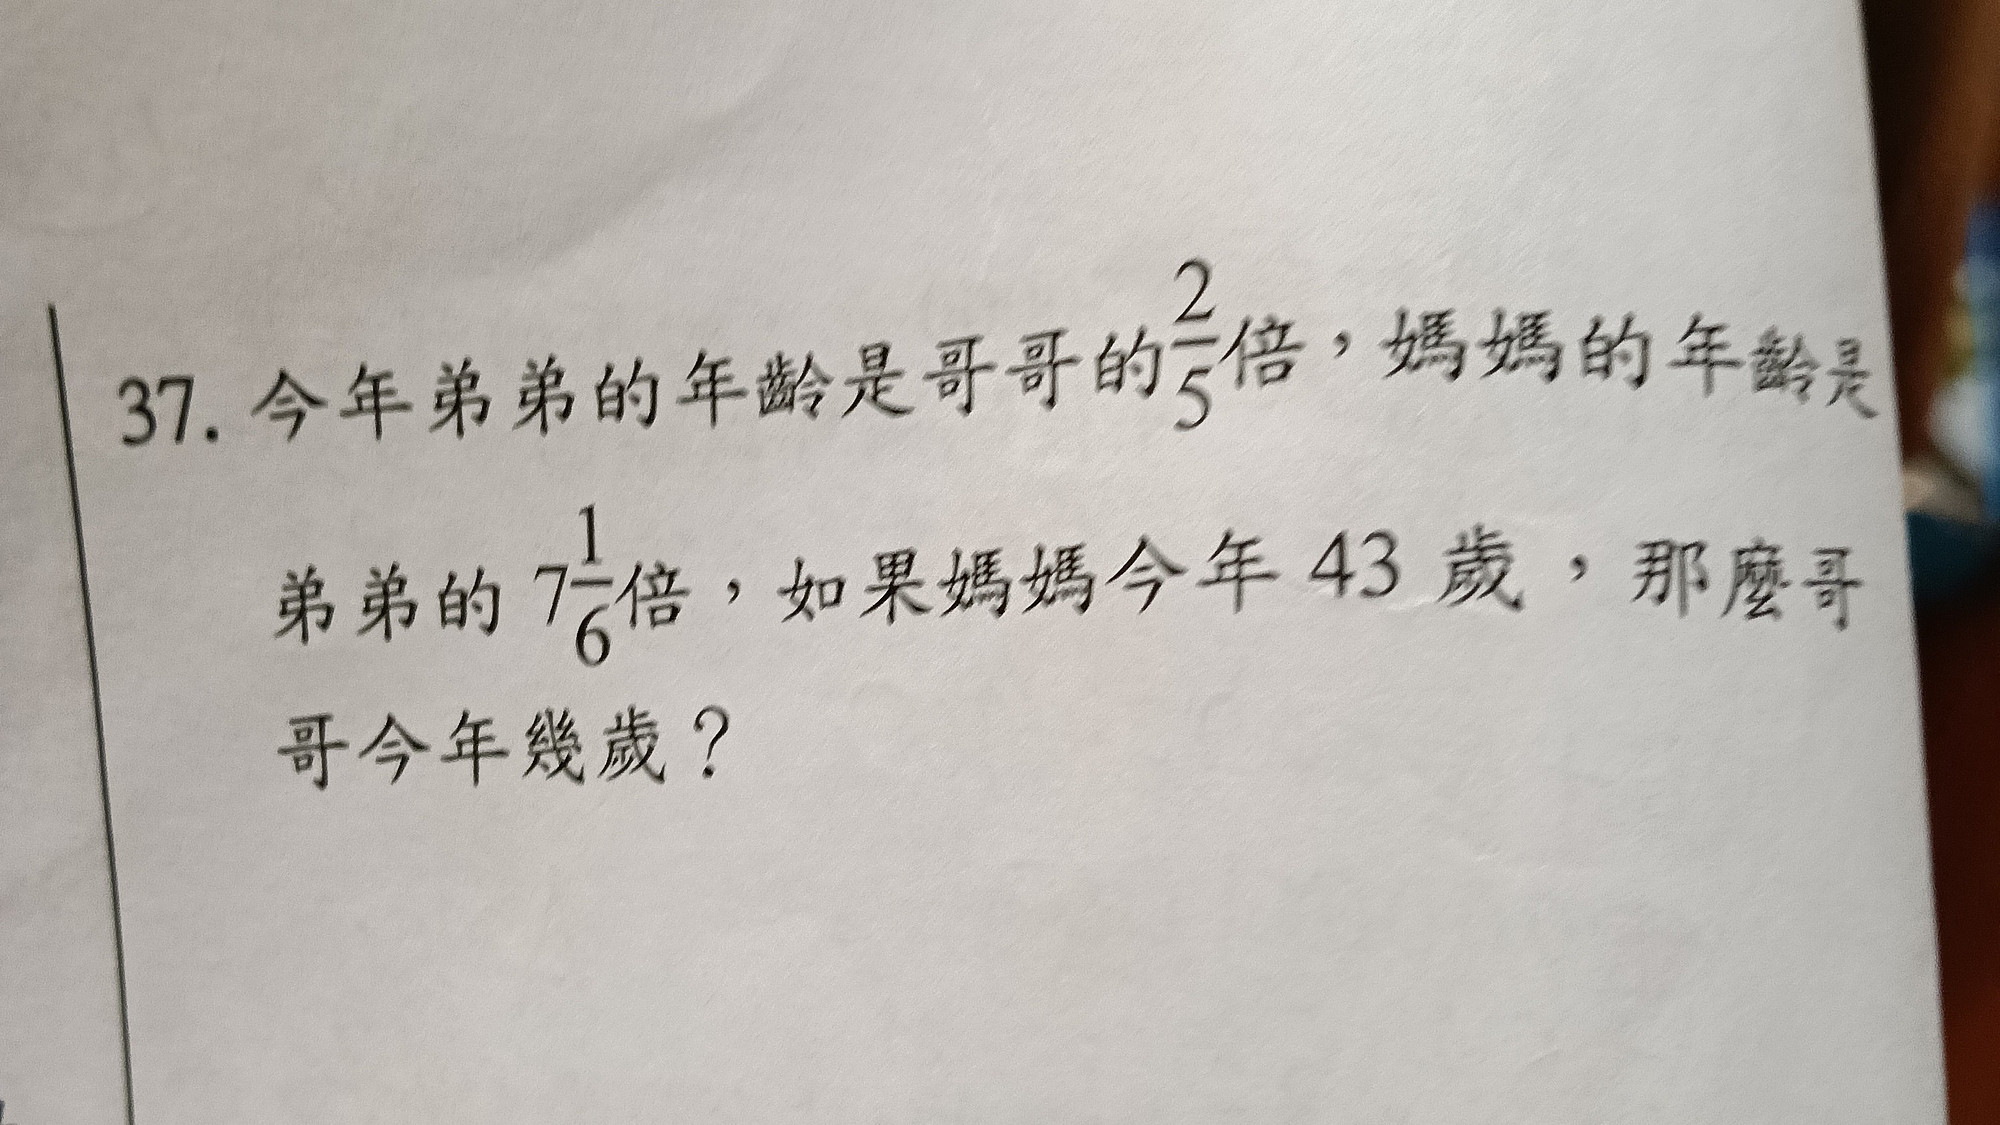 37. 今年弟弟的年齡是哥哥的2/5倍，媽媽的年齡是
弟弟的 7 1/6倍，如果媽媽今年 43 歲，那麼哥
哥今年幾歲？